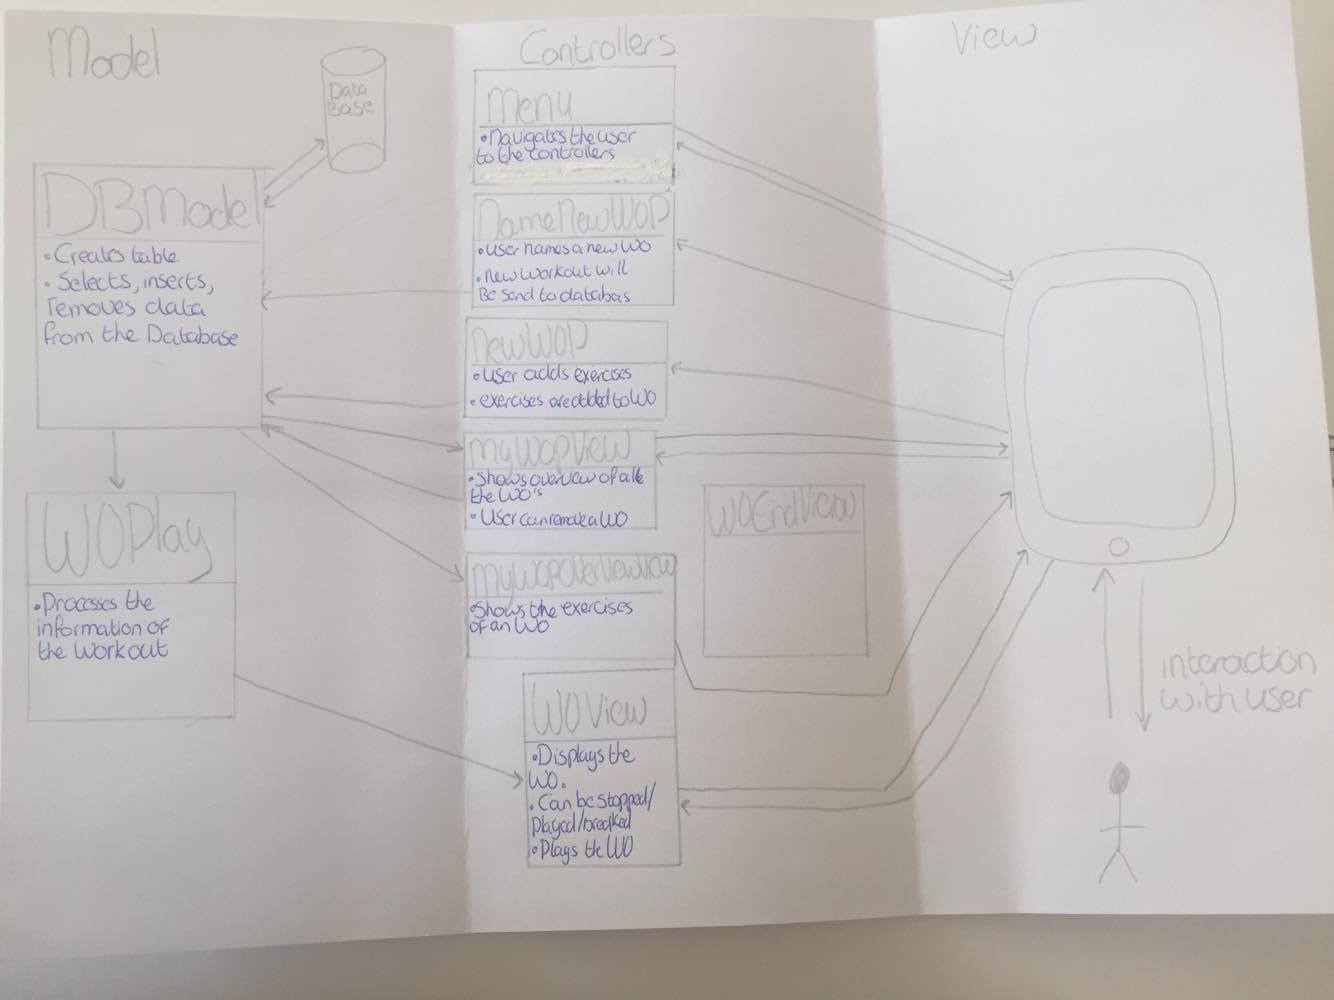 Model
Data
Base
DBModel
• Creates table
• Selects, inserts,
removes data
from the Database
WOPlay
• Processes the
information of
the Workout
Controllers
Menu
• Navigates the user
to the controllers
NameNewWOP
• User names a new WO
• new workout will
Be send to databas
newWOP
• User adds exercises
• exercises are added to WO
myWopView
• Shows overview of all
the WO's
• User can remove a WO
myWopOverviewView
• Shows the exercises
of an WO
WOEndView
WOView
• Displays the
WO.
• Can be stopped/
played/breaked
• Plays the WO
View
interaction
with user